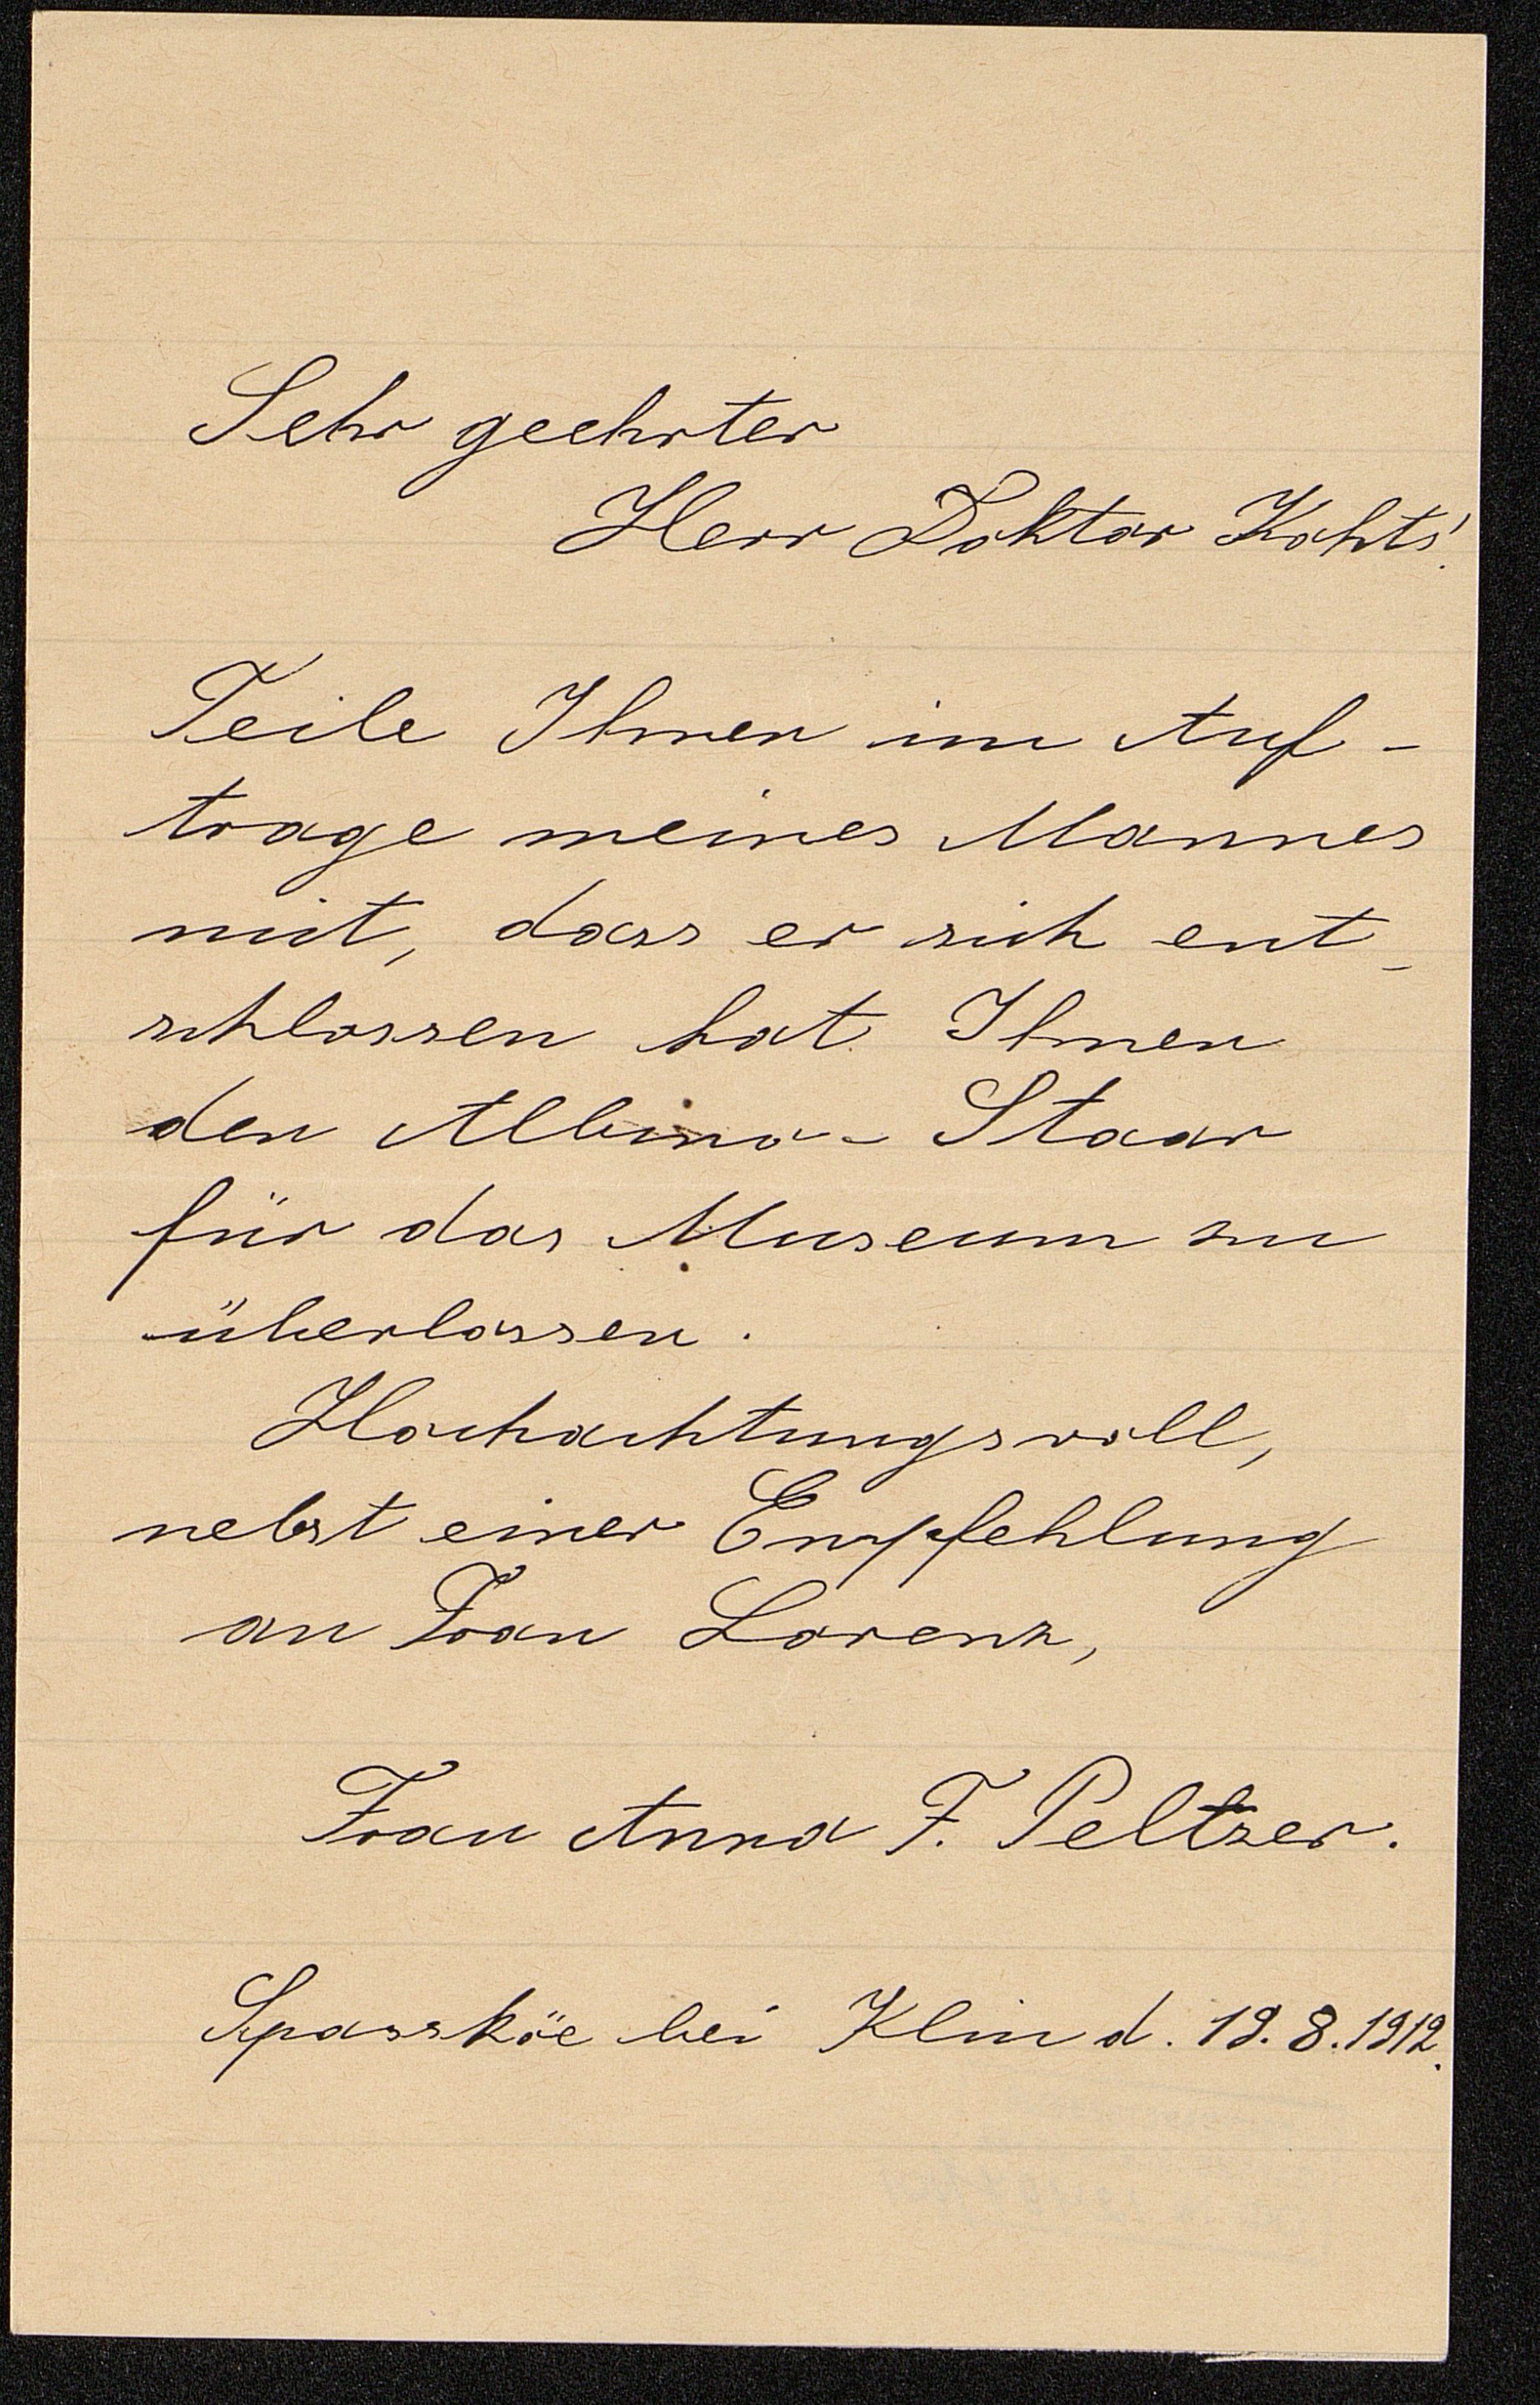 Sehr geehrter
Herr Doktor Kohts!
Teile Ihnen im Auf-
trage meines Mannes
mit, dass er sich ent-
schlossen hat Ihnen
den Albino- Staar
für das Museum zu
überlassen.
Hochachtungsvoll,
nebst einer Empfehlung
an Frau Lorenz,
Frau Anna F. Peltzer.
Spassköe bei Klin d. 19.8.1912.